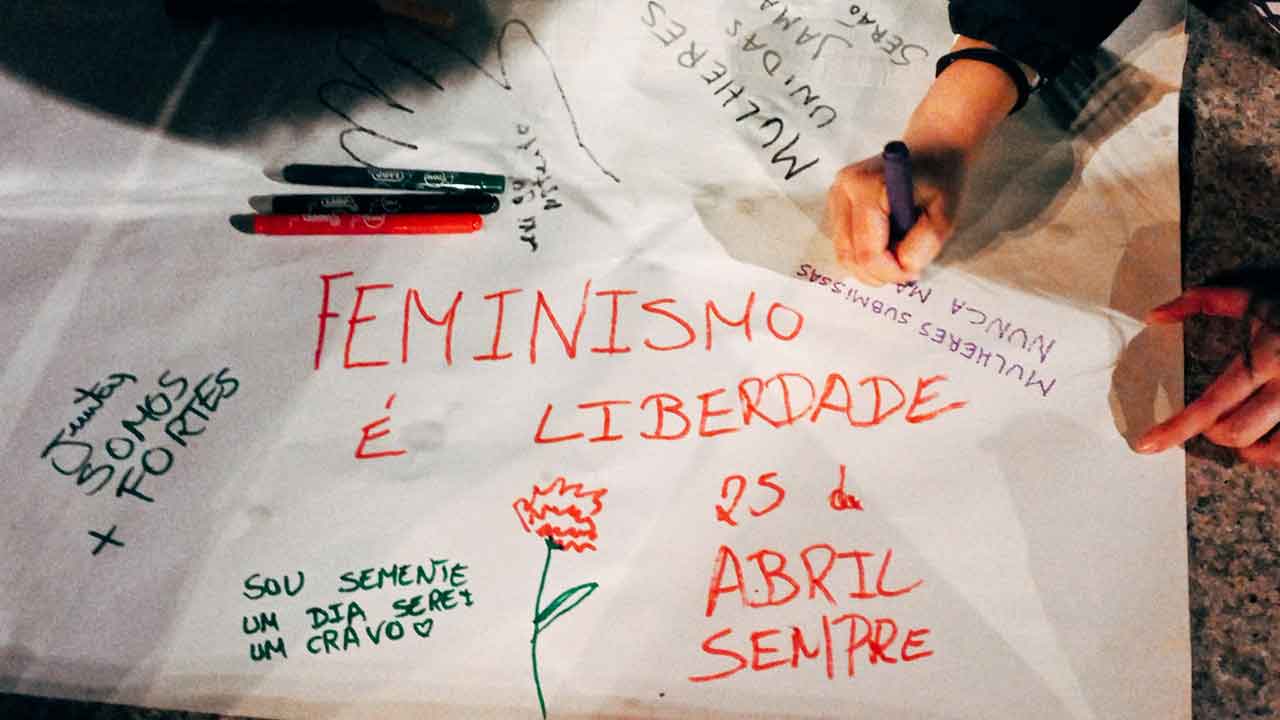 MULHERES
UNIDAS
JAMA
SERÃO
MULHERES SUBMISSAS
NUNCA MA
FEMINISMO
É LIBERDADE
25 de
ABRIL
SEMPRE
Juntas
SOMOS
+ FORTES
SOU SEMENTE
UM DIA SEREI
UM CRAVO♡